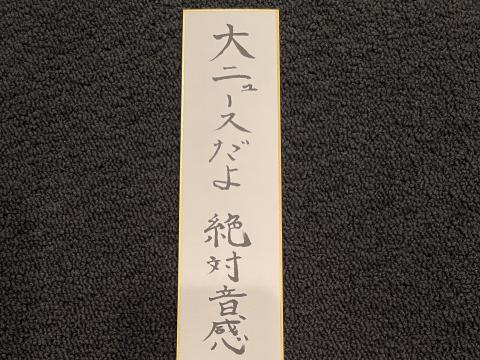 大ニュースだよ 絶対音感